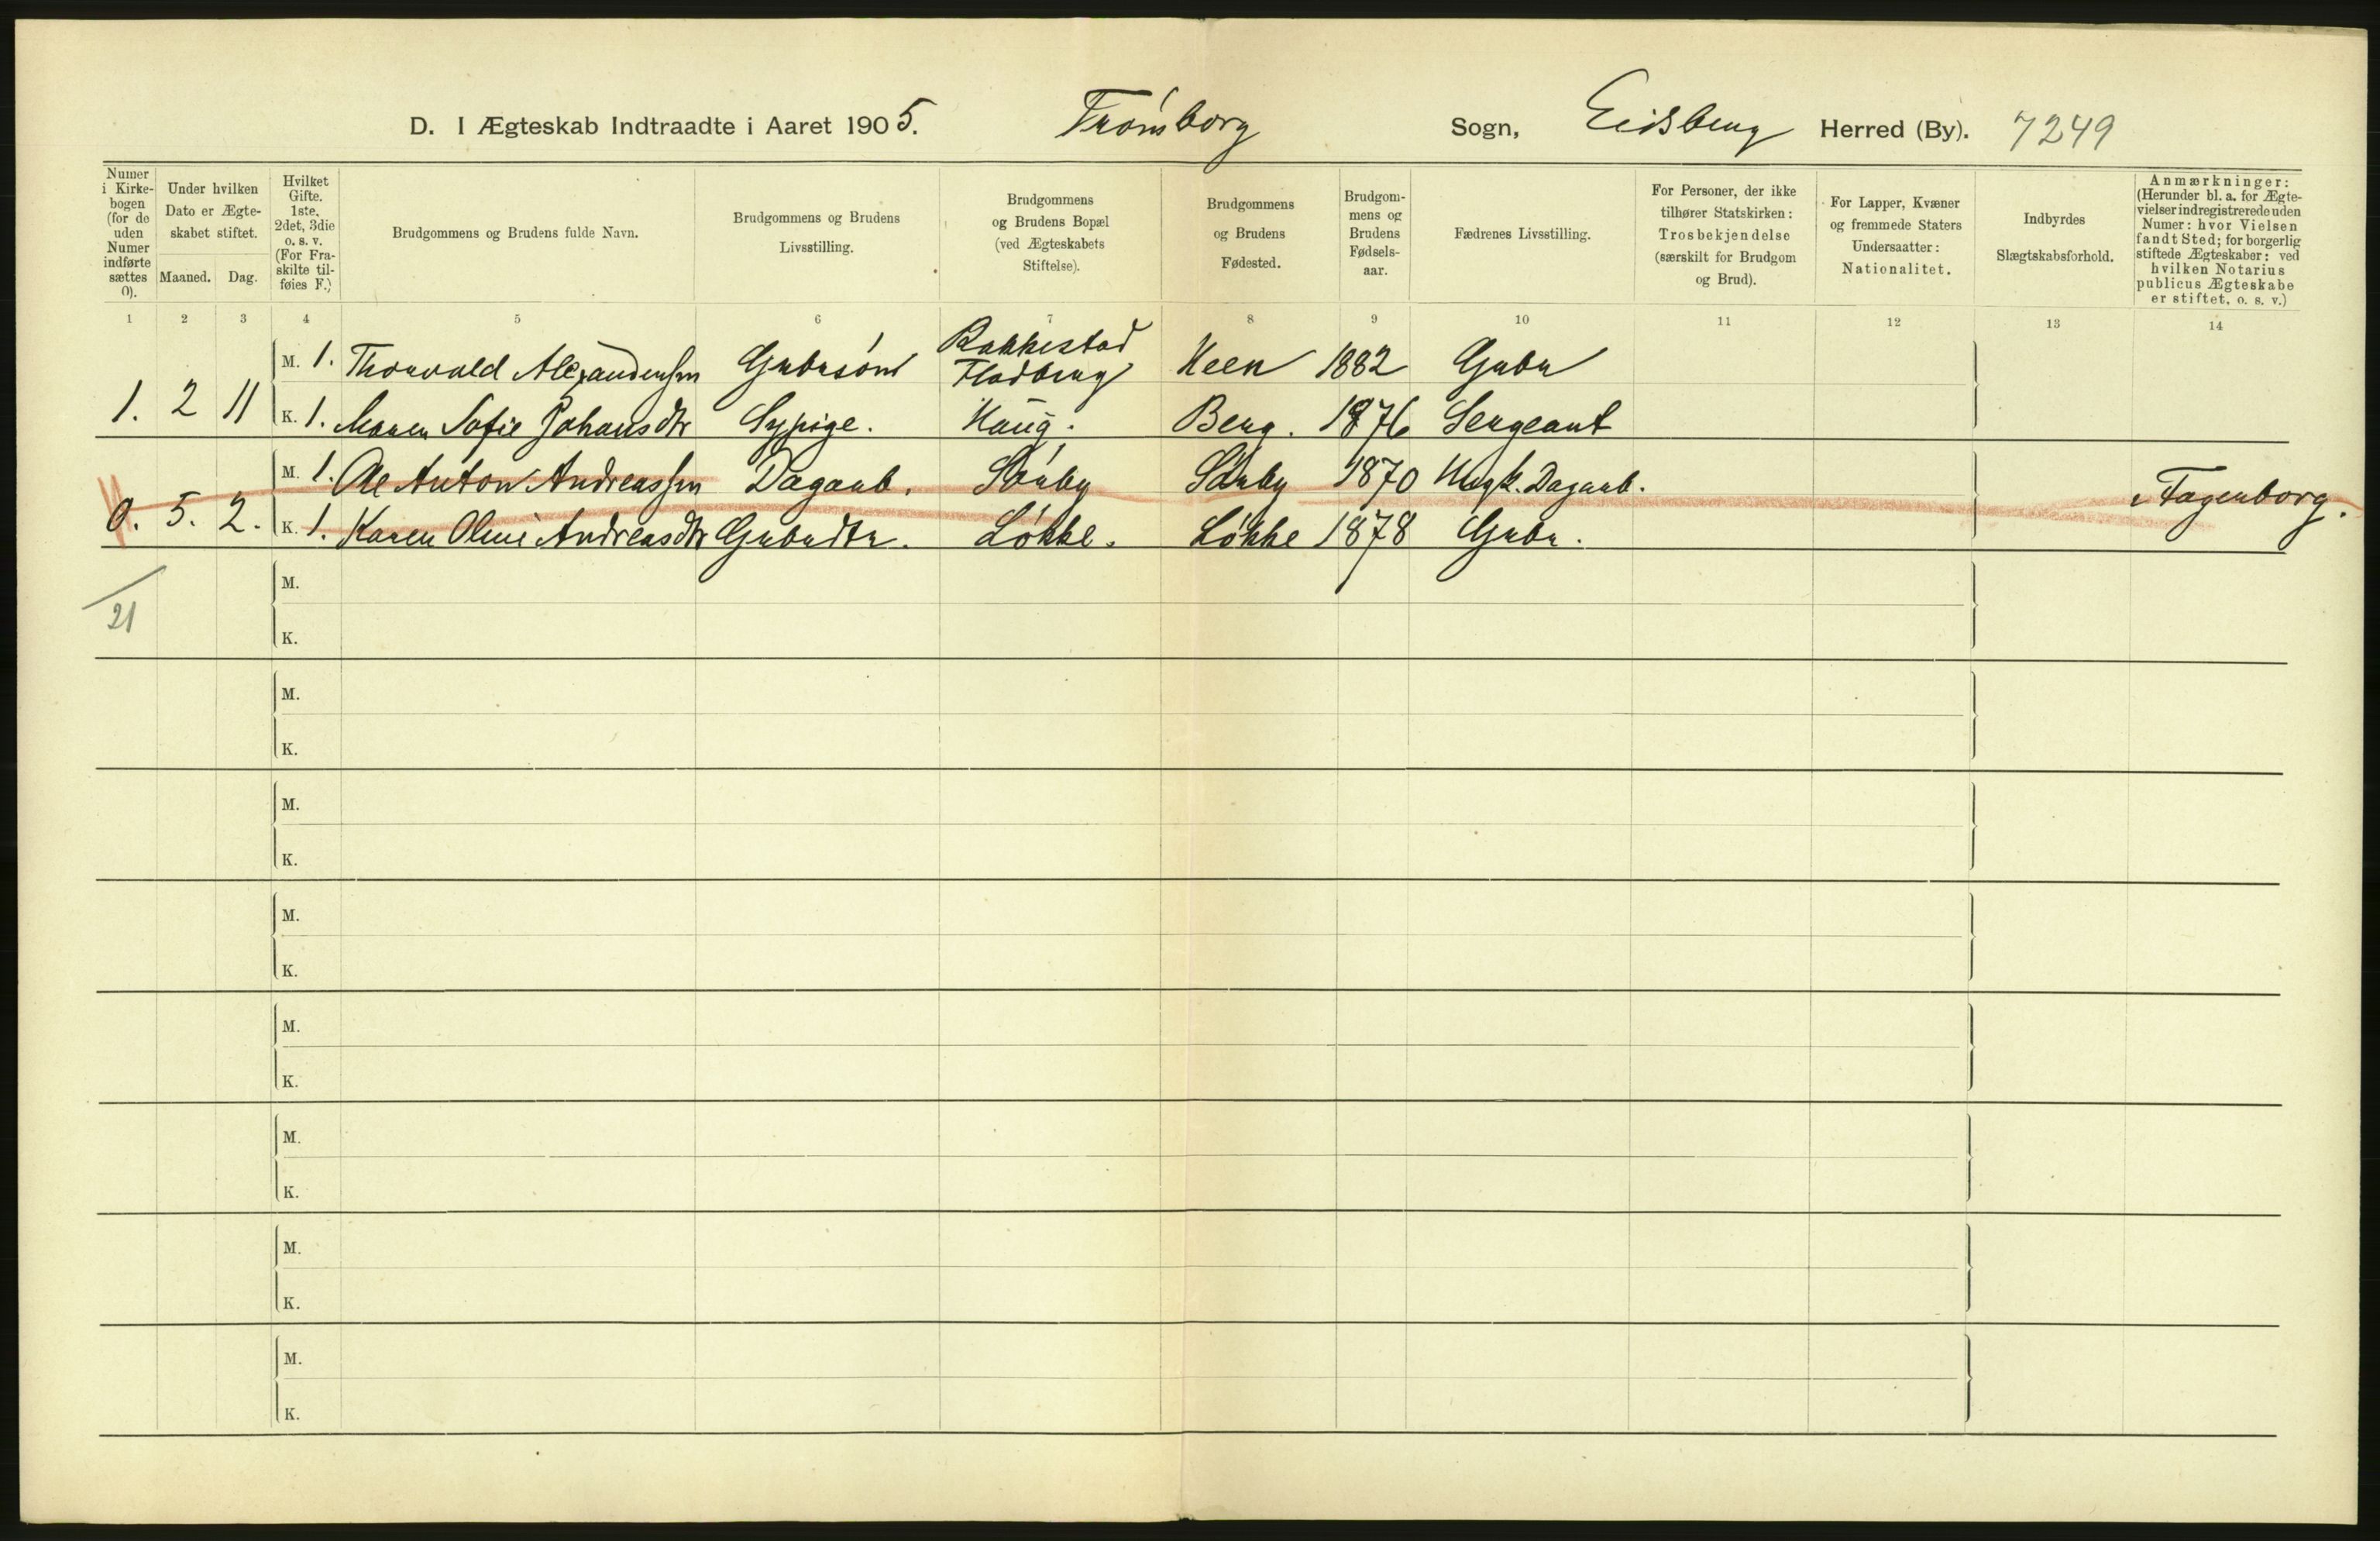 D. I Ægteskab Indtraadte i Aaret 1905. Trømborg Sogn, Eidsberg Herred (By). 7249
Numer i Kirkebogen (for de uden Numer indførte sættes 0).
Under hvilken Dato er Ægteskabet stiftet.
Maaned. Dag.
Hvilket Gifte. 1ste, 2det, 3die o. s. v. (For Fraskilte tilføies F.)
Brudgommens og Brudens fulde Navn.
Brudgommens og Brudens Livsstilling.
Brudgommens og Brudens Bopæl (ved Ægteskabets Stiftelse).
Brudgommens og Brudens Fødested.
Brudgommens og Brudens Fødselsaar.
Fædrenes Livsstilling.
For Personer, der ikke tilhører Statskirken: Trosbekjendelse (særskilt for Brudgom og Brud).
For Lapper, Kvæner og fremmede Staters Undersaatter: Nationalitet.
Indbyrdes Slægtskabsforhold.
Anmærkninger: (Herunder bl. a. for Ægtevielser indregistrerede uden Numer: hvor Vielsen fandt Sted; for borgerlig stiftede Ægteskaber: ved hvilken Notarius publicus Ægteskabe er stiftet, o. s. v.)
1 2 3 4 5 6 7 8 9 10 11 12 13 14
M. 1. Thorvald Alexandersen Gubrsøn Rakkestad Fladberg Heen 1882 Gubr
1. 2 11
K. 1. Maren Sofie Johansdtr Sypige. Haug. Berg. 1876 Sergeant
M. 1. Ole Anton Andreassen Dagarb. Sørby Sørby 1870 Dagarb.
0. 5. 2. Fagerborg.
K. 1. Karen Oline Andreasdtr Gubrdtr. Løkke. Løkke 1878 Gubr.
M.
21
K.
M.
K.
M.
K.
M.
K.
M.
K.
M.
K.
M.
K.
M.
K.